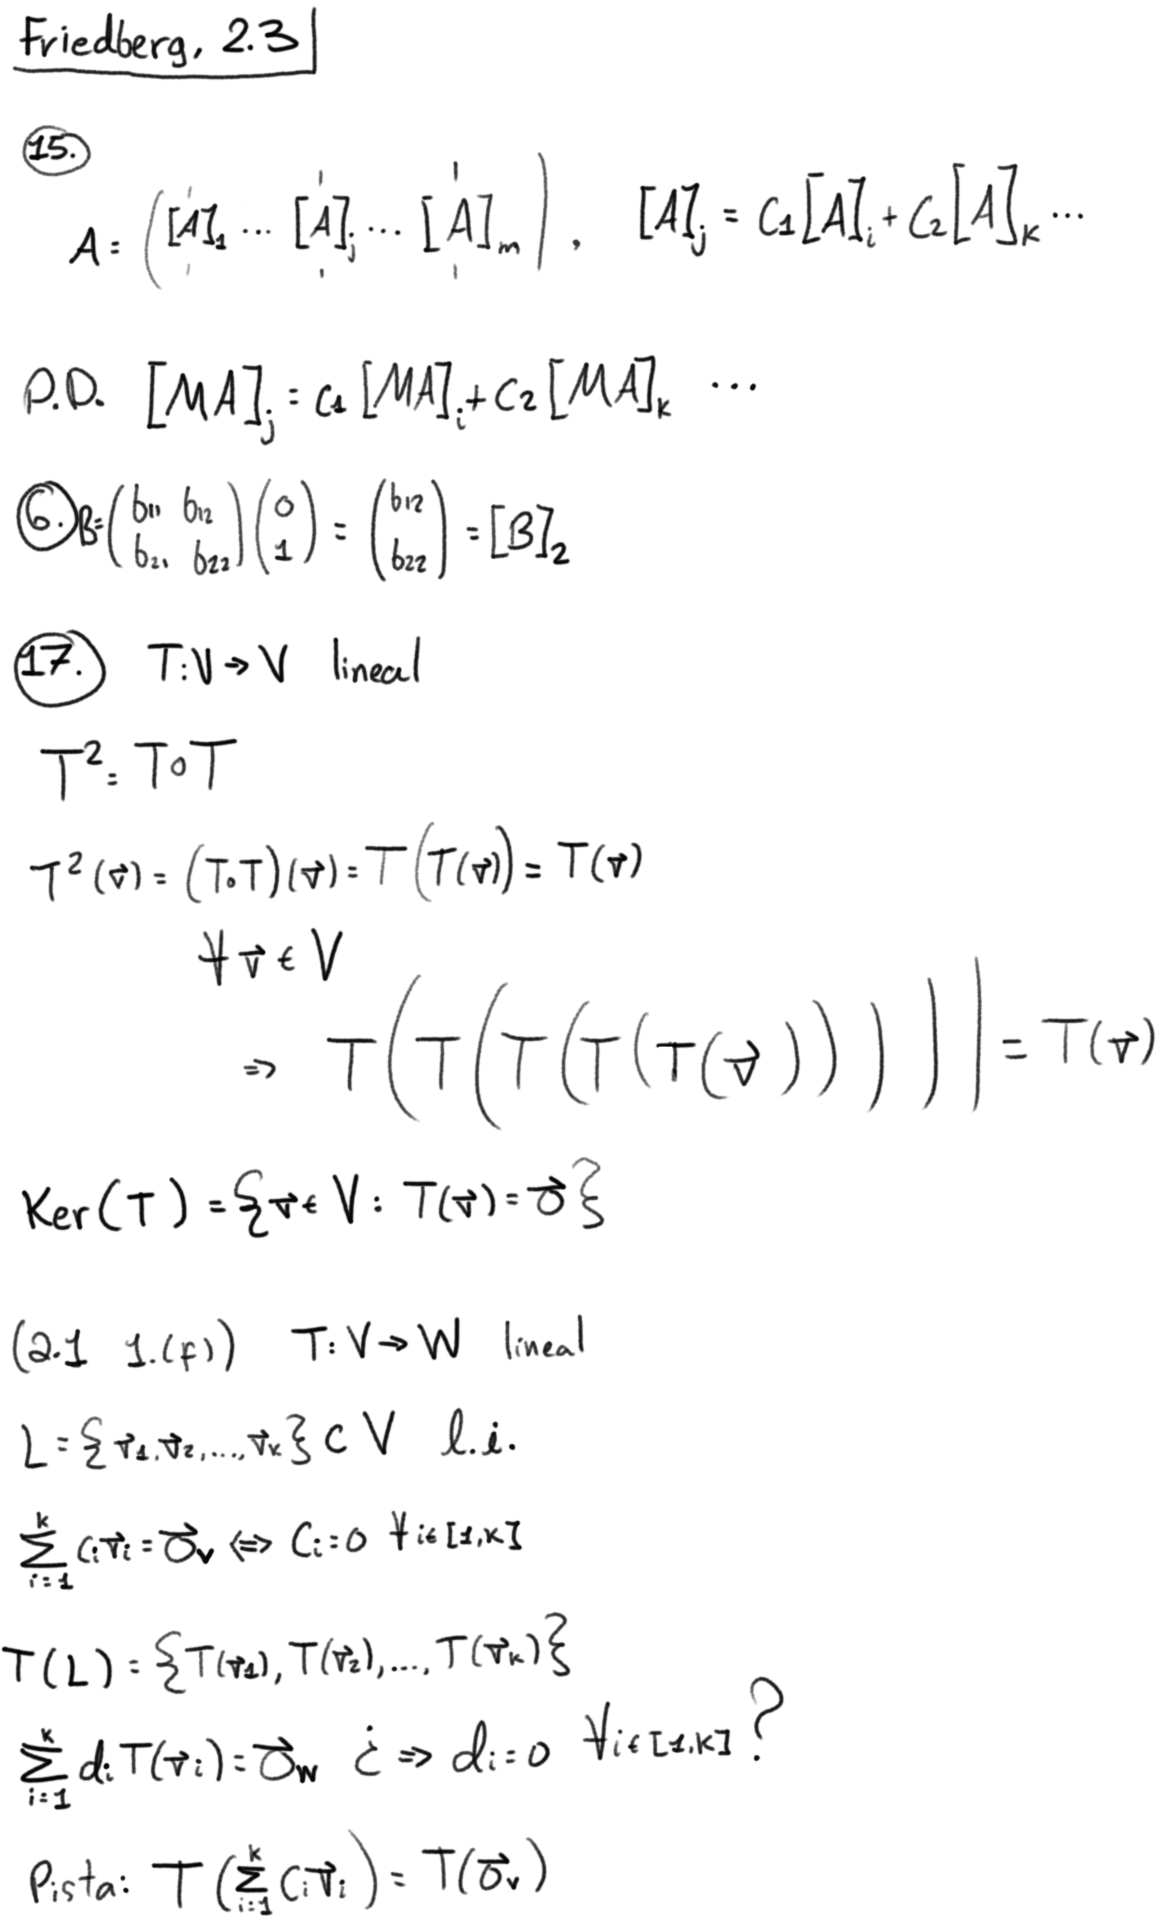 Friedberg, 2.3
15.
A = ([A]₁ ... [A]ⱼ ... [A]ₘ), [A]ⱼ = C₁[A]ᵢ + C₂[A]ₖ ...
P.D. [MA]ⱼ = C₁[MA]ᵢ + C₂[MA]ₖ ...
6. B = (b₁₁ b₁₂; b₂₁ b₂₂)(0; 1) = (b₁₂; b₂₂) = [B]₂
17. T: V → V lineal
T² = T∘T
T²(v⃗) = (T∘T)(v⃗) = T(T(v⃗)) = T(v⃗)
∀ v⃗ ∈ V
⇒ T(T(T(T(T(v⃗))))) = T(v⃗)
Ker(T) = {v⃗ ∈ V : T(v⃗) = 0⃗}
(2.1 1.(f)) T: V → W lineal
L = {v⃗₁, v⃗₂, ..., v⃗ₖ} ⊂ V l.i.
∑ᵢ₌₁ᵏ Cᵢv⃗ᵢ = 0⃗ᵥ ⇔ Cᵢ = 0 ∀ i ∈ [1,k]
T(L) = {T(v⃗₁), T(v⃗₂), ..., T(v⃗ₖ)}
∑ᵢ₌₁ᵏ dᵢT(v⃗ᵢ) = 0⃗_W ¿ ⇒ dᵢ = 0 ∀ i ∈ [1,k] ?
Pista: T(∑ᵢ₌₁ᵏ Cᵢv⃗ᵢ) = T(0⃗ᵥ)